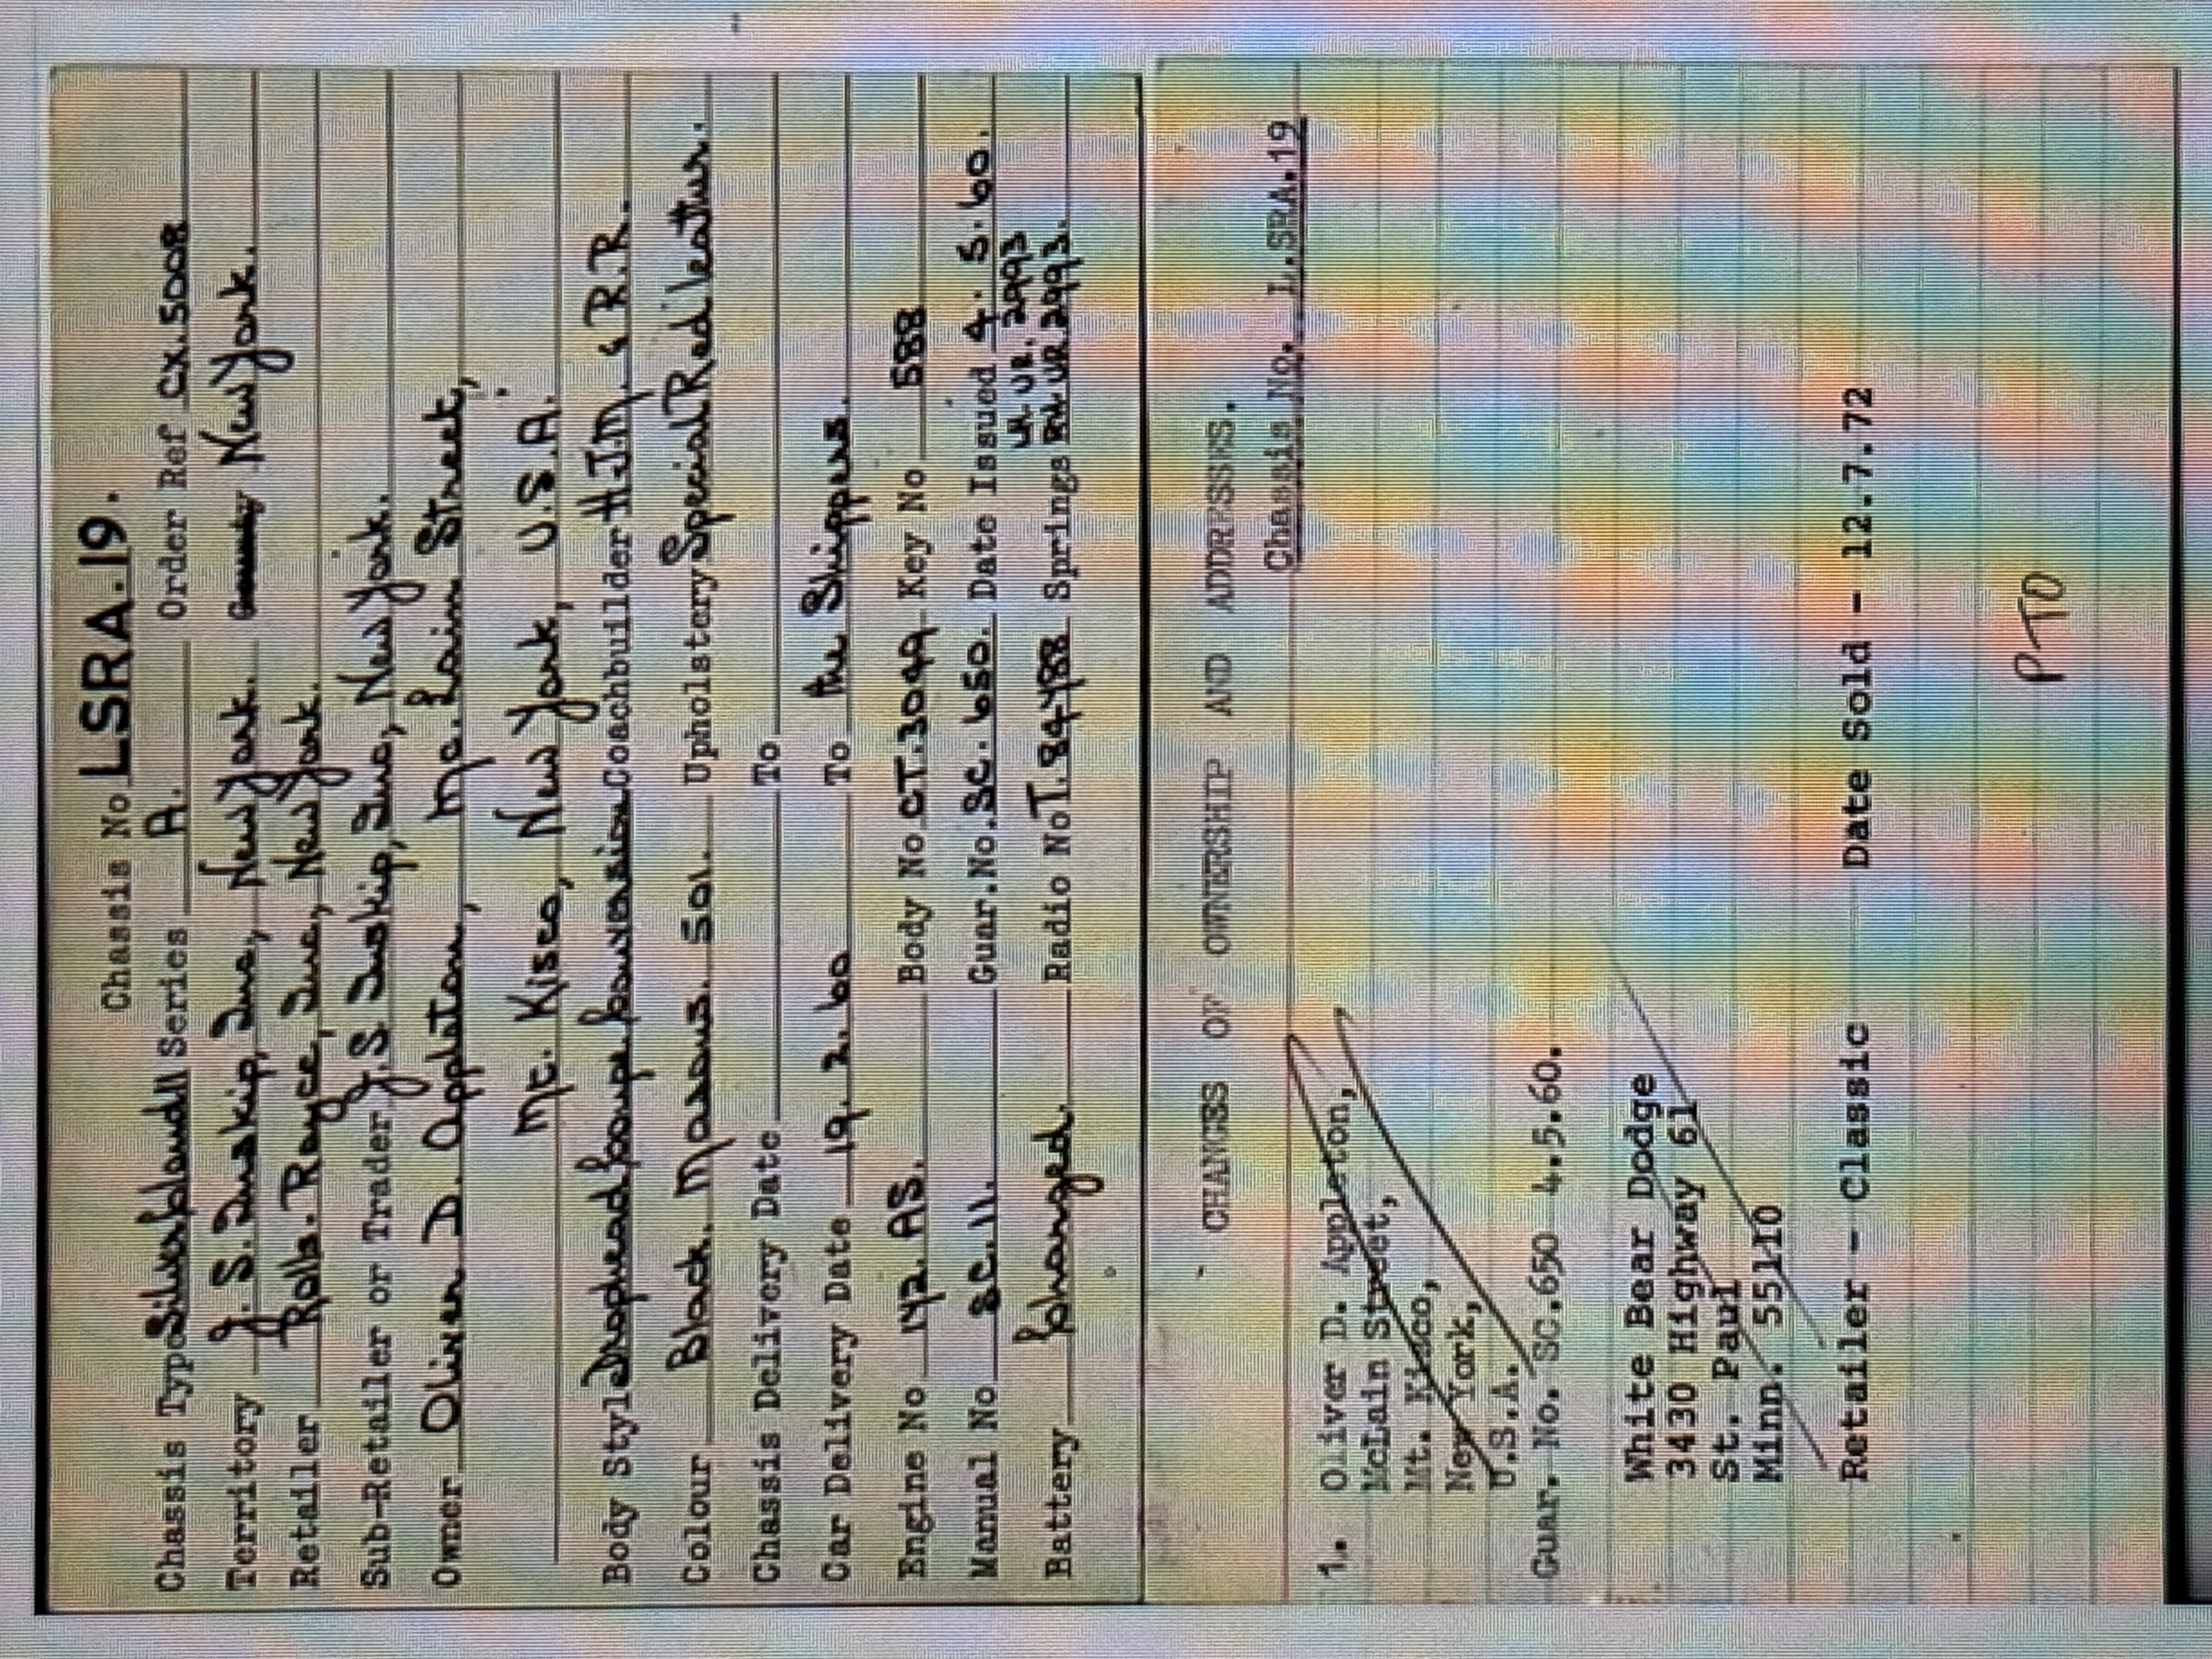 Chassis No LSRA.19.
Chassis Type Silver Cloud II Series A. Order Ref CX.5008
Territory J. S. Inskip, Inc, New York. New York.
Retailer Rolls-Royce, Inc, New York.
Sub-Retailer or Trader J.S Inskip, Inc, New York.
Owner Oliver D. Appleton, Mc. Lain Street,
Mt. Kisco, New York, U.S.A.
Body Style Drophead Coupe Conversion Coachbuilder H.J.M. & R.R.
Colour Black. Masons. 501. Upholstery Special Red leather.
Chassis Delivery Date To
Car Delivery Date 19. 2. 60 To the Shippers.
Engine No 142. AS. Body No CT.3049 Key No 588
Manual No SC. 11. Guar.No. SC. 650. Date Issued 4. 5. 60.
LH UR. 2993
Battery Changed Radio No T.84788 Springs RH UR 2993.
CHANGES OF OWNERSHIP AND ADDRESSES.
Chassis No. L.SRA.19
1. Oliver D. Appleton,
McLain Street,
Mt. Kisco,
New York,
U.S.A.
Guar. No. SC.650 4.5.60.
White Bear Dodge
3430 Highway 61
St. Paul
Minn. 55110
Retailer - Classic Date Sold - 12.7.72
PTO